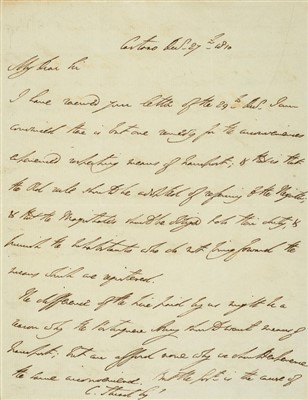 Cartaxo Decr. 27th 1810
My dear Sir
I have received your letter of the 24th Decr. I am
convinced there is but one remedy for the inconvenience
experienced respecting means of transport; & that is that
the old rule should be established of referring to the
& that the Magistrates should be obliged to do their duty, &
punish the Inhabitants who do not bring forward the
means which are registered.
The difference of the hire paid by us might be a
reason why the Portuguese Army should want means of
transport; but can afford none why we should experience
the same inconvenience. But the fact is the cause of
C. Stuart Esq